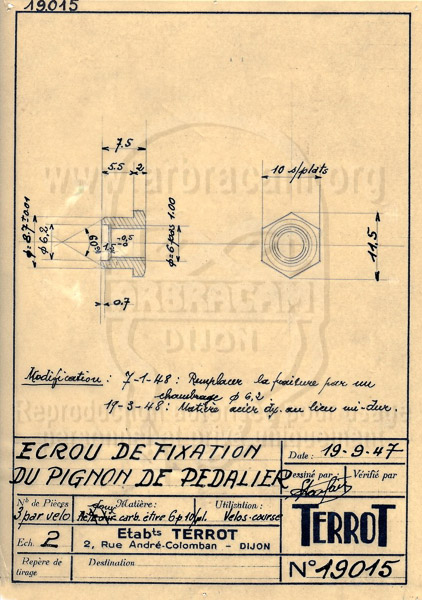 19015
www.arbracam.org
7.5
5.5 2
10 s/plats
φ=8.7 ± 0.01
φ 6.2
φ=6 pas 1.00
11.5
0.7
ARBRACAM
DIJON
Modification : 7-1-48 : Remplacer la fraisure par un
chambrage φ 6,2
19-3-48 : Matière acier dx. au lieu mi-dur.
ECROU DE FIXATION
DU PIGNON DE PEDALIER
Date : 19-9-47
Dessiné par : Vérifié par
Nb de Pièces
3 par vélo
Matière :
doux
carb. étiré 6 p 10/pl.
Utilisation :
Vélos-course
Ech. 2
Etabts TERROT
2, Rue André-Colomban – DIJON
TERROT
Repère de
tirage
Destination
N° 19015